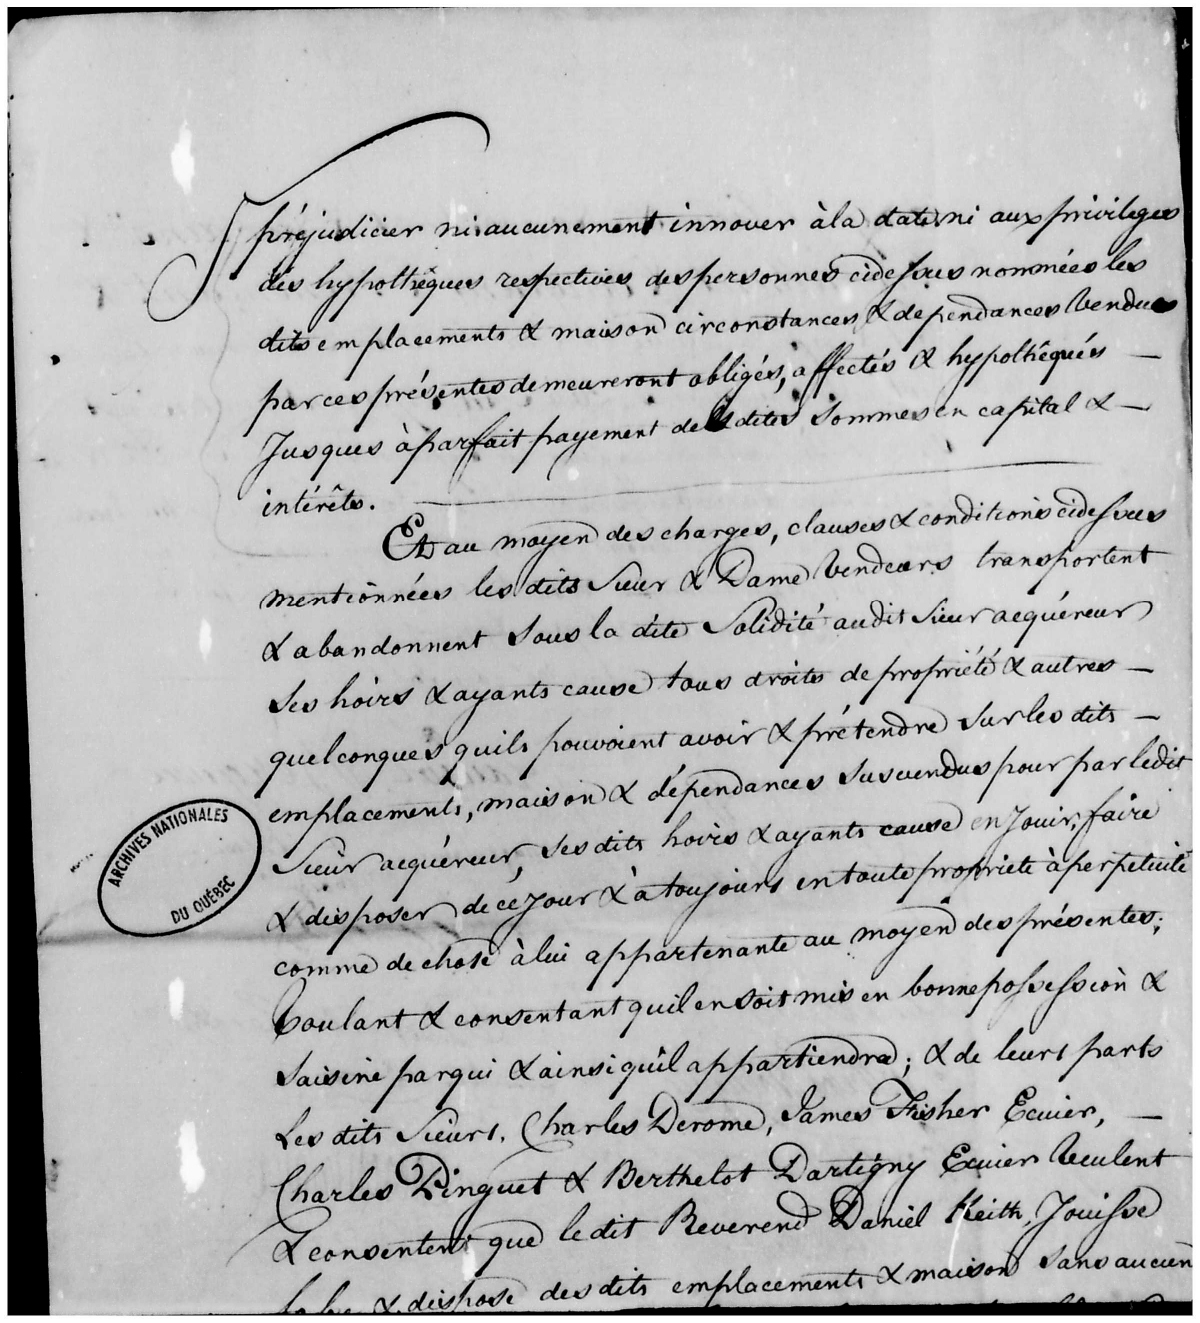 préjudicier ni aucunement innover à la date ni aux privileges
des hypothêques respectives des personnes cidessus nommées les
dits emplacements & maison circonstances & dependances Vendues
par ces présentes demeureront obligés, affectés & hypothêqués —
Jusques à parfait payement des dites sommes en capital & —
intérêts.
Et au moyen des charges, clauses & conditions cidessus
mentionnées les dits Sieur & Dame Vendeurs transportent
& abandonnent sous la dite Solidité audit Sieur acquéreur
Ses hoirs & ayants cause tous droits de propriété & autres —
quelconques quils pouvoient avoir & prétendre sur les dits —
emplacements, maison & dépendances susvendus pour par ledit
Sieur acquéreur, ses dits hoirs & ayants cause en Jouir, faire
& disposer de ce Jour & à toujours en toute propriete à perpetuité
comme de chose à lui appartenante au moyen des présentes;
Voulant & consentant quil en soit mis en bonne possession &
saisine par qui & ainsi quil appartiendra; & de leurs parts
Les dits Sieurs, Charles Derome, James Fisher Ecuier, —
Charles Pinguet & Berthelot Dartigny Ecuier Veulent
& consentent que le dit Reverend Daniel Keith, Jouisse
& dispose des dits emplacements & maison sans aucun
ARCHIVES NATIONALES
DU QUÉBEC